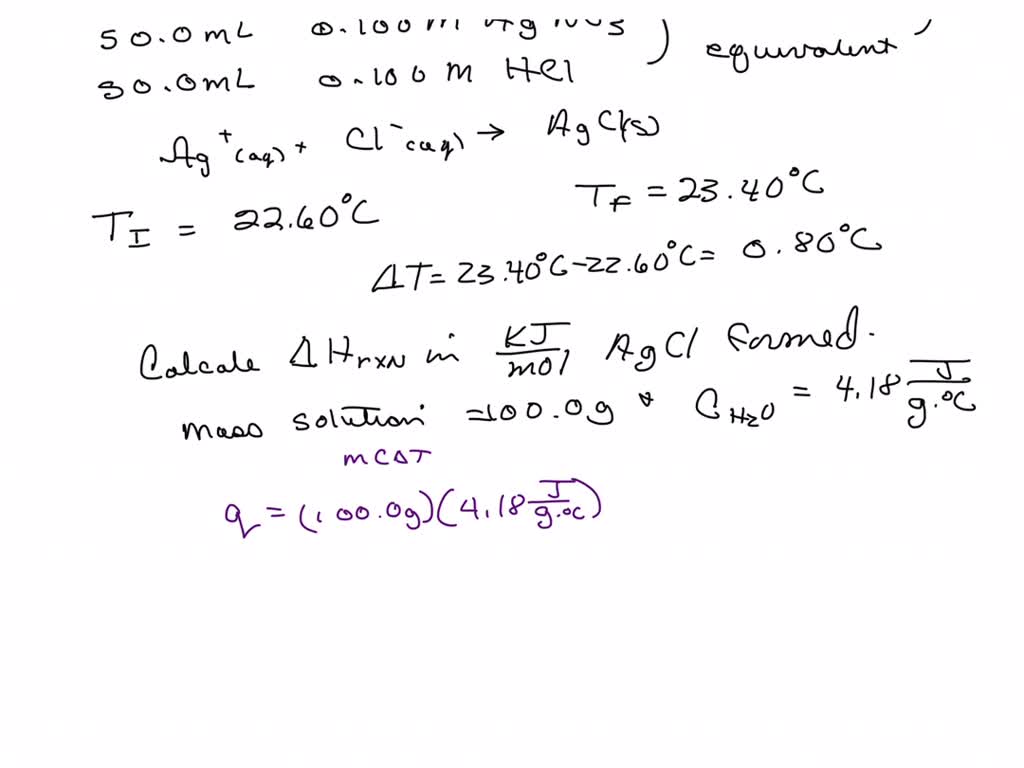 50.0mL 0.100m AgNO3 ) equivalent
50.0mL 0.100m HCl
Ag+(aq) + Cl-(aq) → AgCl(s)
TI = 22.60°C TF = 23.40°C
ΔT = 23.40°C-22.60°C = 0.80°C
Calcale ΔHrxN in KJ/mol AgCl formed.
mass solution = 100.0g * CH2O = 4.18 J/g.°C
mCΔT
q = (100.0g)(4.18 J/g.°C)